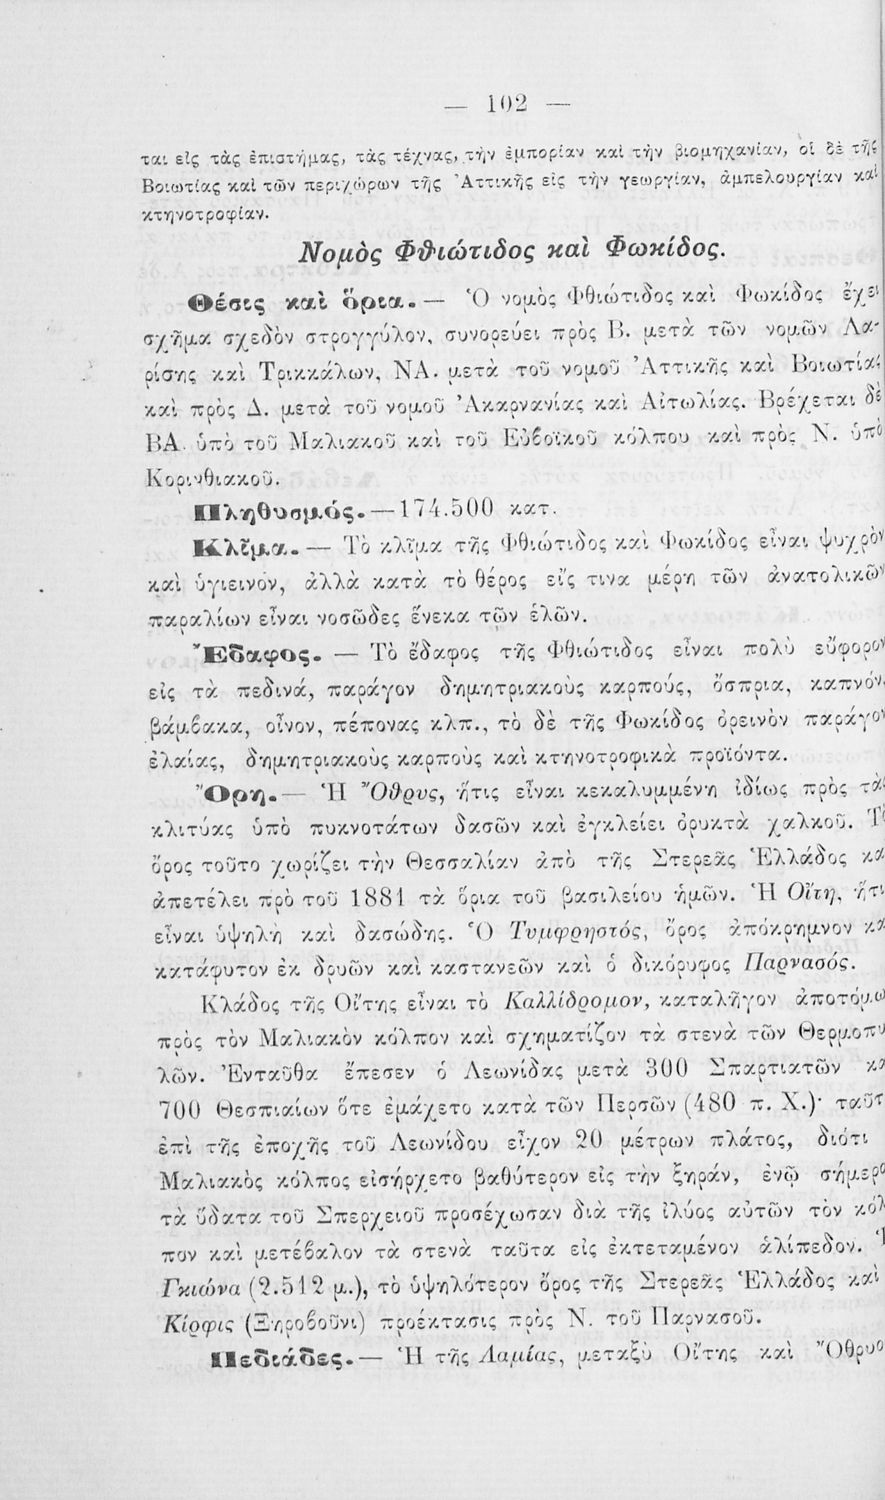 — 102 —
ται εἰς τὰς ἐπιστήμας, τὰς τέχνας, τὴν ἐμπορίαν καὶ τὴν βιομηχανίαν, οἱ δὲ τῆς
Βοιωτίας καὶ τῶν περιχώρων τῆς Ἀττικῆς εἰς τὴν γεωργίαν, ἀμπελουργίαν καὶ
κτηνοτροφίαν.
Νομὸς Φθιώτιδος καὶ Φωκίδος.
Θέσις καὶ ὅρια. — Ὁ νομὸς Φθιώτιδος καὶ Φωκίδος ἔχει
σχῆμα σχεδὸν στρογγύλον, συνορεύει πρὸς Β. μετὰ τῶν νομῶν Λα-
ρίσης καὶ Τρικκάλων, ΝΑ. μετὰ τοῦ νομοῦ Ἀττικῆς καὶ Βοιωτίας
καὶ πρὸς Δ. μετὰ τοῦ νομοῦ Ἀκαρνανίας καὶ Αἰτωλίας. Βρέχεται δὲ
ΒΑ. ὑπὸ τοῦ Μαλιακοῦ καὶ τοῦ Εὐβοϊκοῦ κόλπου καὶ πρὸς Ν. ὑπὸ
Κορινθιακοῦ.
Πληθυσμός. — 174.500 κατ.
Κλῖμα. — Τὸ κλῖμα τῆς Φθιώτιδος καὶ Φωκίδος εἶναι ψυχρὸν
καὶ ὑγιεινόν, ἀλλὰ κατὰ τὸ θέρος εἴς τινα μέρη τῶν ἀνατολικῶν
παραλίων εἶναι νοσῶδες ἕνεκα τῶν ἑλῶν.
Ἔδαφος. — Τὸ ἔδαφος τῆς Φθιώτιδος εἶναι πολὺ εὔφορον
εἰς τὰ πεδινά, παράγον δημητριακοὺς καρπούς, ὄσπρια, καπνόν,
βάμβακα, οἶνον, πέπονας κλπ., τὸ δὲ τῆς Φωκίδος ὀρεινὸν παράγον
ἐλαίας, δημητριακοὺς καρποὺς καὶ κτηνοτροφικὰ προϊόντα.
Ὄρη. — Ἡ Ὄθρυς, ἥτις εἶναι κεκαλυμμένη ἰδίως πρὸς τὰς
κλιτύας ὑπὸ πυκνοτάτων δασῶν καὶ ἐγκλείει ὀρυκτὰ χαλκοῦ. Τὸ
ὄρος τοῦτο χωρίζει τὴν Θεσσαλίαν ἀπὸ τῆς Στερεᾶς Ἑλλάδος κα
ἀπετέλει πρὸ τοῦ 1881 τὰ ὅρια τοῦ βασιλείου ἡμῶν. Ἡ Οἴτη, ἥτι
εἶναι ὑψηλὴ καὶ δασώδης. Ὁ Τυμφρηστός, ὄρος ἀπόκρημνον κα
κατάφυτον ἐκ δρυῶν καὶ καστανεῶν καὶ ὁ δικόρυφος Παρνασός.
Κλάδος τῆς Οἴτης εἶναι τὸ Καλλίδρομον, καταλῆγον ἀποτόμω
πρὸς τὸν Μαλιακὸν κόλπον καὶ σχηματίζον τὰ στενὰ τῶν Θερμοπυ
λῶν. Ἐνταῦθα ἔπεσεν ὁ Λεωνίδας μετὰ 300 Σπαρτιατῶν κα
700 Θεσπιαίων ὅτε ἐμάχετο κατὰ τῶν Περσῶν (480 π. Χ.)· ταῦτ
ἐπὶ τῆς ἐποχῆς τοῦ Λεωνίδου εἶχον 20 μέτρων πλάτος, διότι
Μαλιακὸς κόλπος εἰσήρχετο βαθύτερον εἰς τὴν ξηράν, ἐνῷ σήμερο
τὰ ὕδατα τοῦ Σπερχειοῦ προσέχωσαν διὰ τῆς ἰλύος αὐτῶν τὸν κόλ
πον καὶ μετέβαλον τὰ στενὰ ταῦτα εἰς ἐκτεταμένον ἁλίπεδον.
Γκιώνα (2.512 μ.), τὸ ὑψηλότερον ὄρος τῆς Στερεᾶς Ἑλλάδος καὶ
Κίρφις (Ξηροβούνι) προέκτασις πρὸς Ν. τοῦ Παρνασοῦ.
Πεδιάδες. — Ἡ τῆς Λαμίας, μεταξὺ Οἴτης καὶ Ὄθρυο